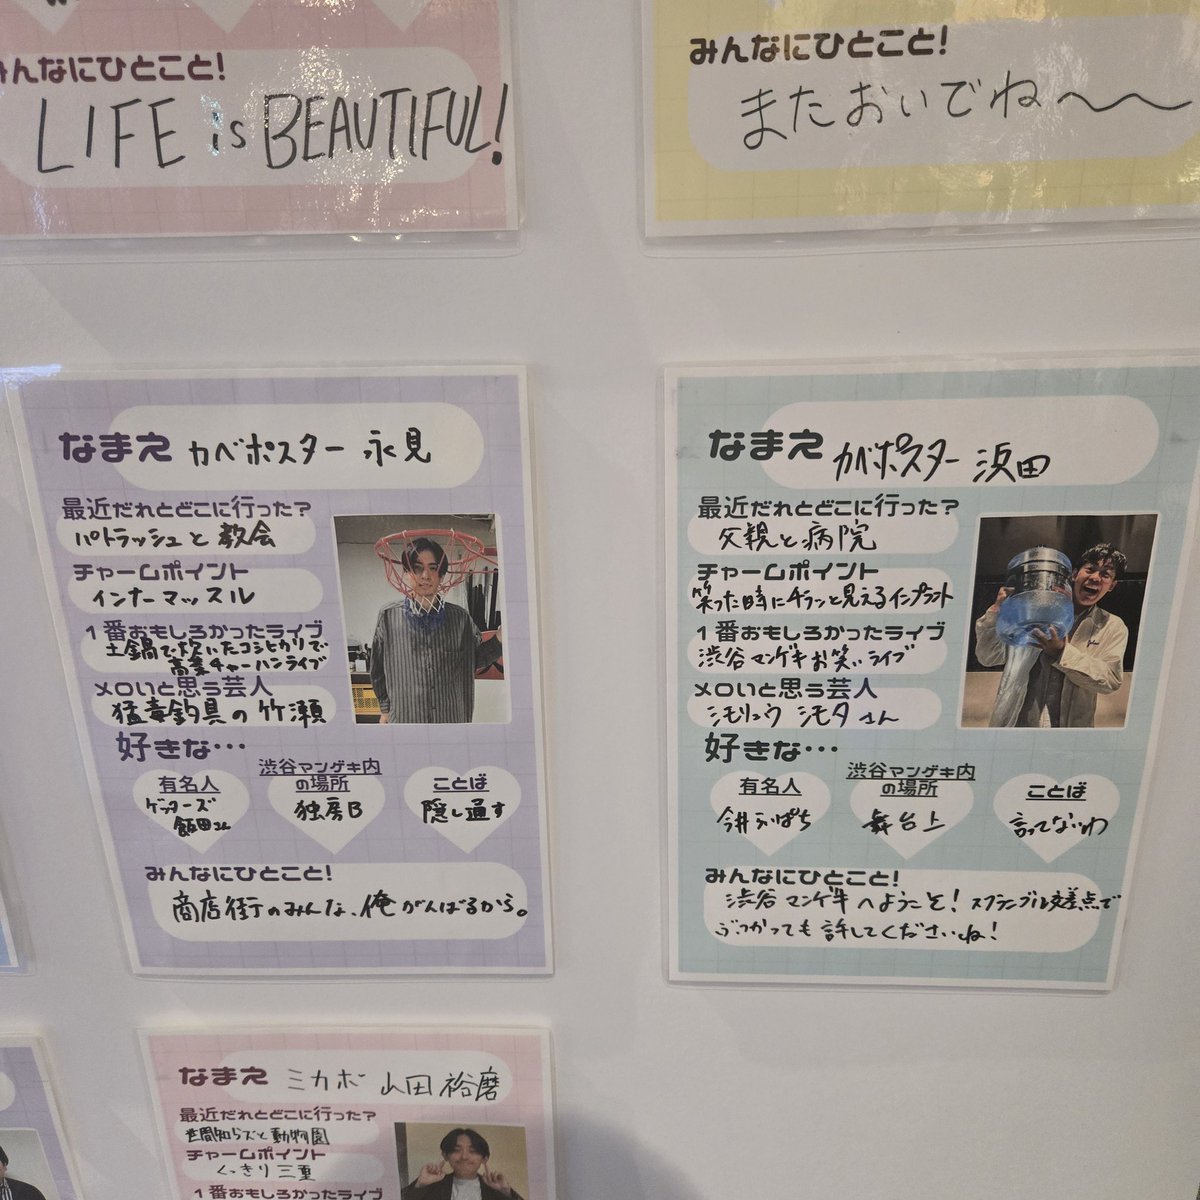 みんなにひとこと!
LIFE is BEAUTIFUL!
みんなにひとこと!
またおいでね〜〜
なまえ カベポスター 永見
最近だれとどこに行った?
パトラッシュと教会
チャームポイント
インナーマッスル
1番おもしろかったライブ
土鍋で炊いたコシヒカリで
高菜チャーハンライブ
メロいと思う芸人
猛毒釣具の竹瀬
好きな…
有名人
ゲッターズ
飯田さん
渋谷マンゲキ内
の場所
独房B
ことば
隠し通す
みんなにひとこと!
商店街のみんな、俺がんばるから。
なまえ カベポスター 浜田
最近だれとどこに行った?
父親と病院
チャームポイント
笑った時にチラッと見えるインプラント
1番おもしろかったライブ
渋谷マンゲキお笑いライブ
メロいと思う芸人
シモリュウ シモタさん
好きな…
有名人
今井らいぱち
渋谷マンゲキ内
の場所
舞台上
ことば
言ってないわ
みんなにひとこと!
渋谷マンゲキへようこそ!スクランブル交差点で
ぶつかっても許してくださいね!
なまえ ミカボ 山田裕磨
最近だれとどこに行った?
世間知らズと動物園
チャームポイント
くっきり三重
1番おもしろかったライブ